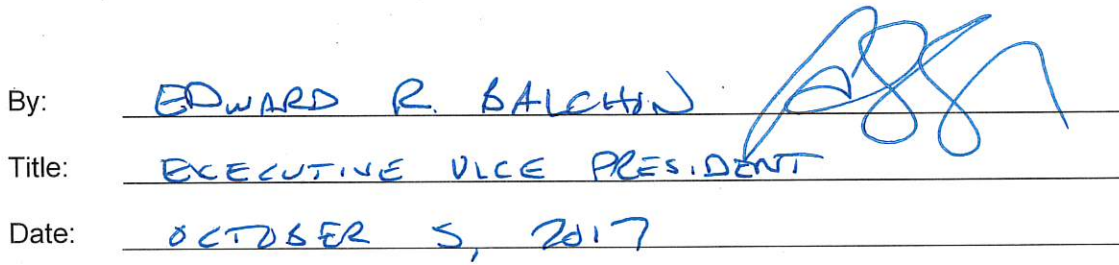 By: EDWARD R. BALCHIN
Title: EXECUTIVE VICE PRESIDENT
Date: OCTOBER 5, 2017